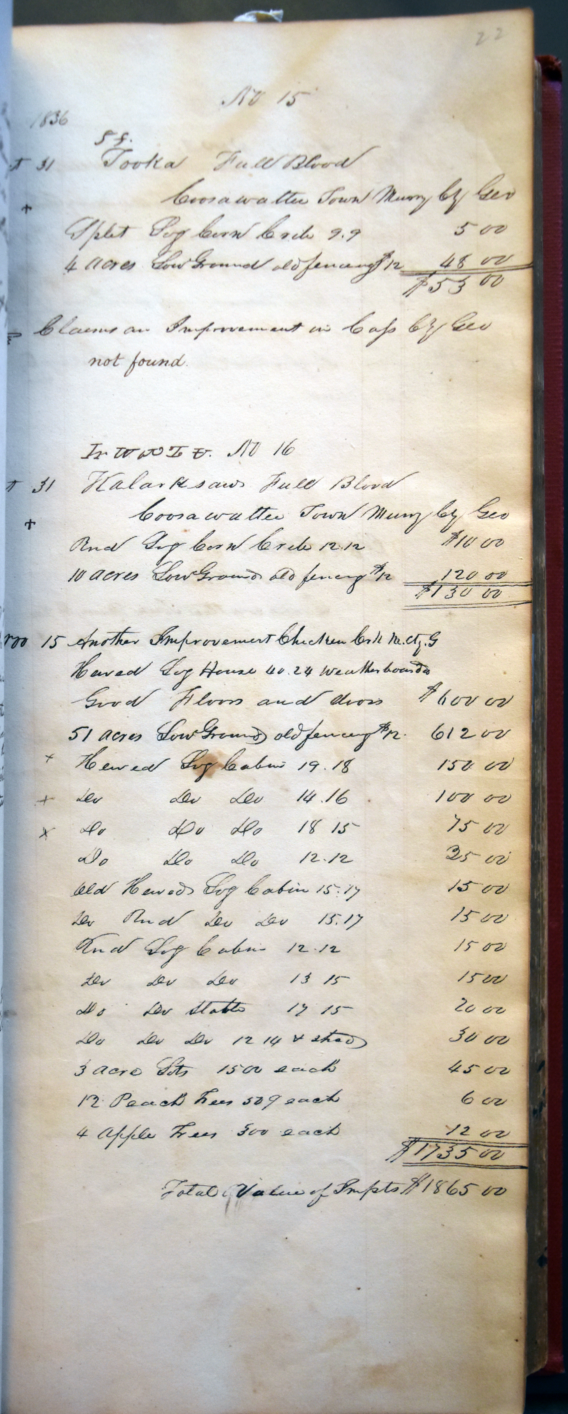 22
No 15
1836
31 Tooka Full Blood
+ Coosawattee Town Murry Cty Geo
Split Log Corn Crib 9.9 5 00
4 acres Low Ground old fencing $12 48 00
$53 00
Claims an Improvement in Cass Cty Geo
not found.
No 16
31 Kalarksaw Full Blood
+ Coosawattee Town Murry Cty Geo
Rnd Log Corn Crib 12.12 $10 00
10 acres Low Ground old fencing $12 120 00
$130 00
15 Another Improvement Chicken Crk M. Cty. G
Hewed Log House 40.24 weatherboards
Good Floors and doors $600 00
51 acres Low Ground old fencing $12. 612 00
+ Hewed Log Cabin 19.18 150 00
+ Do Do Do 14.16 100 00
x Do Do Do 18 15 75 00
Do Do Do 12.12 35 00
Old Hewed Log Cabin 15.17 15 00
Do Rnd Do Do 15.17 15 00
Rnd Log Cabin 12.12 15 00
Do Do Do 13 15 15 00
Do Do Stable 17 15 20 00
Do Do Do 12 14 & shed 30 00
3 acre Lots 15 00 each 45 00
12 Peach Trees 50¢ each 6 00
4 Apple Trees 300 each 12 00
$1735 00
Total Value of Impts $1865 00